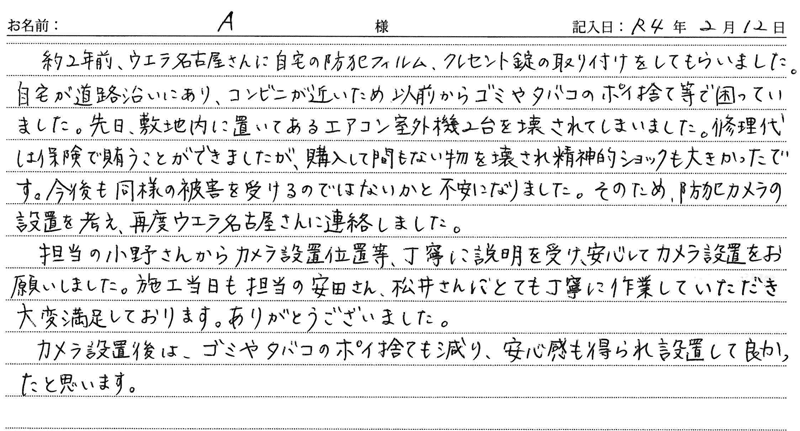 お名前： A 様 記入日：R4年2月12日
約2年前、ウエラ名古屋さんに自宅の防犯フィルム、クレセント錠の取り付けをしてもらいました。
自宅が道路沿いにあり、コンビニが近いため以前からゴミやタバコのポイ捨て等で困ってい
ました。先日、敷地内に置いてあるエアコン室外機2台を壊されてしまいました。修理代
は保険で賄うことができましたが、購入して間もない物を壊され精神的ショックも大きかったで
す。今後も同様の被害を受けるのではないかと不安になりました。そのため、防犯カメラの
設置を考え、再度ウエラ名古屋さんに連絡しました。
担当の小野さんからカメラ設置位置等、丁寧に説明を受け、安心してカメラ設置をお
願いしました。施工当日も担当の安田さん、松井さんにとても丁寧に作業していただき
大変満足しております。ありがとうございました。
カメラ設置後は、ゴミやタバコのポイ捨ても減り、安心感も得られ設置して良かっ
たと思います。